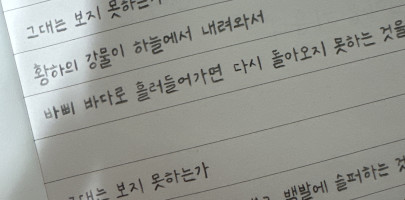 그대는 보지 못하는
황하의 강물이 하늘에서 내려와서
바삐 바다로 흘러들어가면 다시 돌아오지 못하는 것을
그대는 보지 못하는가
백발에 슬퍼하는